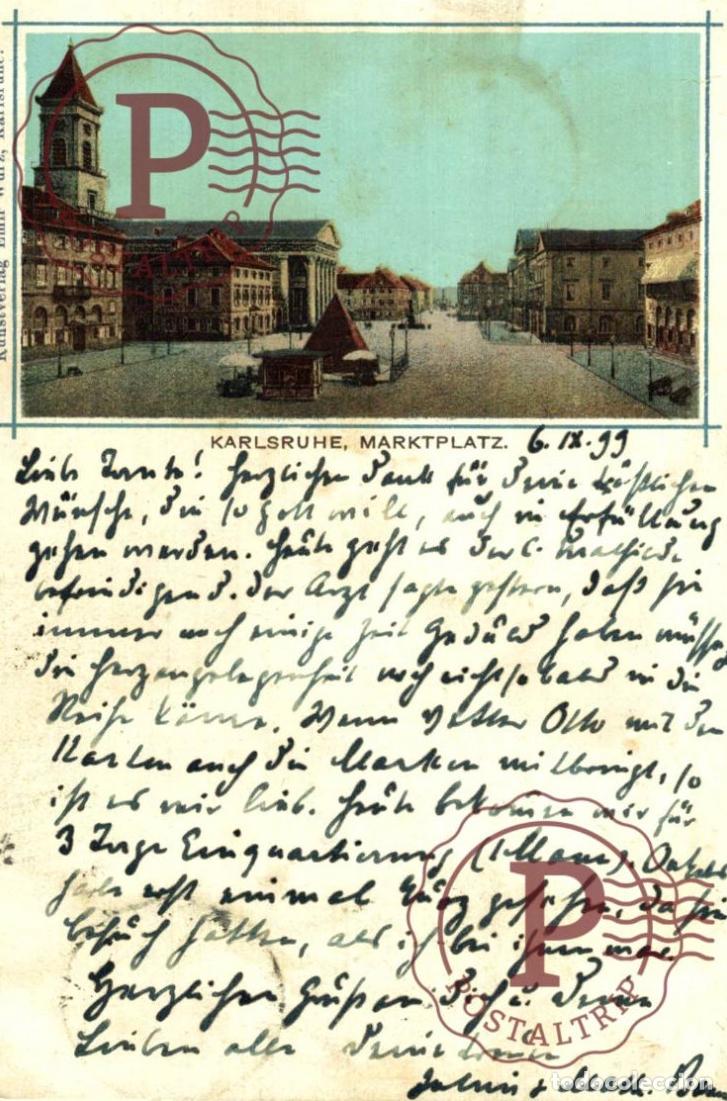 Kunstverlag Emil Wurz, Karlsruhe.
P
POSTALTRIP
KARLSRUHE, MARKTPLATZ. 6.IX.99
Liebe Tante! Herzlichen Dank für Deine köstlichen
Wünsche, die so Gott will, auch in Erfüllung
gehen werden. Heute geht es der l. Mathilde
befriedigend. Der Arzt sagte gestern, daß sie
immer noch einige Zeit Geduld haben müsse,
die Herzangelegenheit noch nicht so bald in die
Reihe käme. Wenn Vetter Otto mit den
Karten auch die Marken mitbringt, so
ist es mir lieb. Heute bekommen wir für
3 Tage Einquartierung (1 Mann). Onkel
habe erst einmal kurz gesehen, da sie
Besuch hatten, als ich bei ihnen war.
Herzlichen Grüßen Dich u. Deine
Lieben alle Deine
P
POSTALTRIP
todocoleccion.net